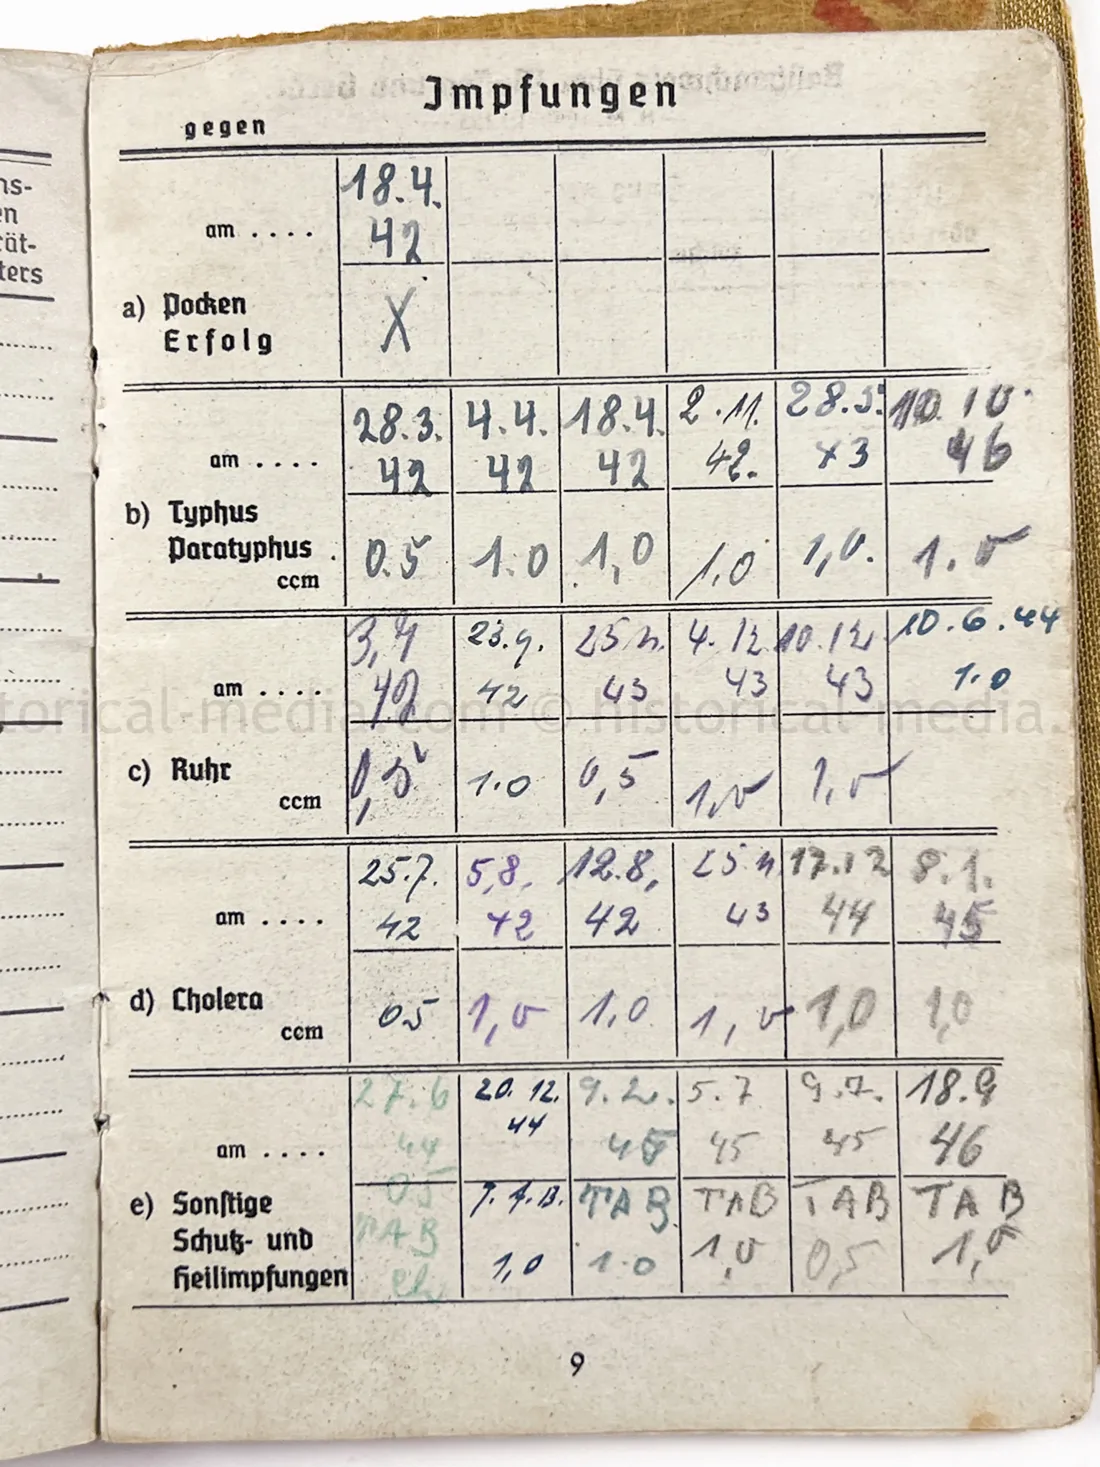 Impfungen
gegen
ns-
en
rät-
ters
18.4.
am .... 42
a) Pocken
Erfolg X
28.3. 4.4. 18.4. 2.11. 28.5. 10.10.
am .... 42 42 42 42. 43 46
b) Typhus
Paratyphus 0.5 1.0 1,0 1,0 1,0. 1.0
ccm
3,4 23.9. 25.11. 4.12. 10.12. 10.6.44
am .... 42 42 43 43 43 1.0
torical-media.com © historical-media.
c) Ruhr 0,5 1.0 0,5 1,0 1,0
ccm
25.7. 5,8. 12.8, 25.11. 17.12 8.1.
am .... 42 42 42 43 44 45
d) Cholera 05 1,0 1,0 1,0 1,0 1,0
ccm
27.6 20.12. 9.2. 5.7 9.7. 18.9
am .... 44 44 45 45 45 46
05
e) Sonstige T.A.B. TAB TAB TAB TAB
Schutz- und TAB
Heilimpfungen 1,0 1.0 1,0 0,5 1,0
9